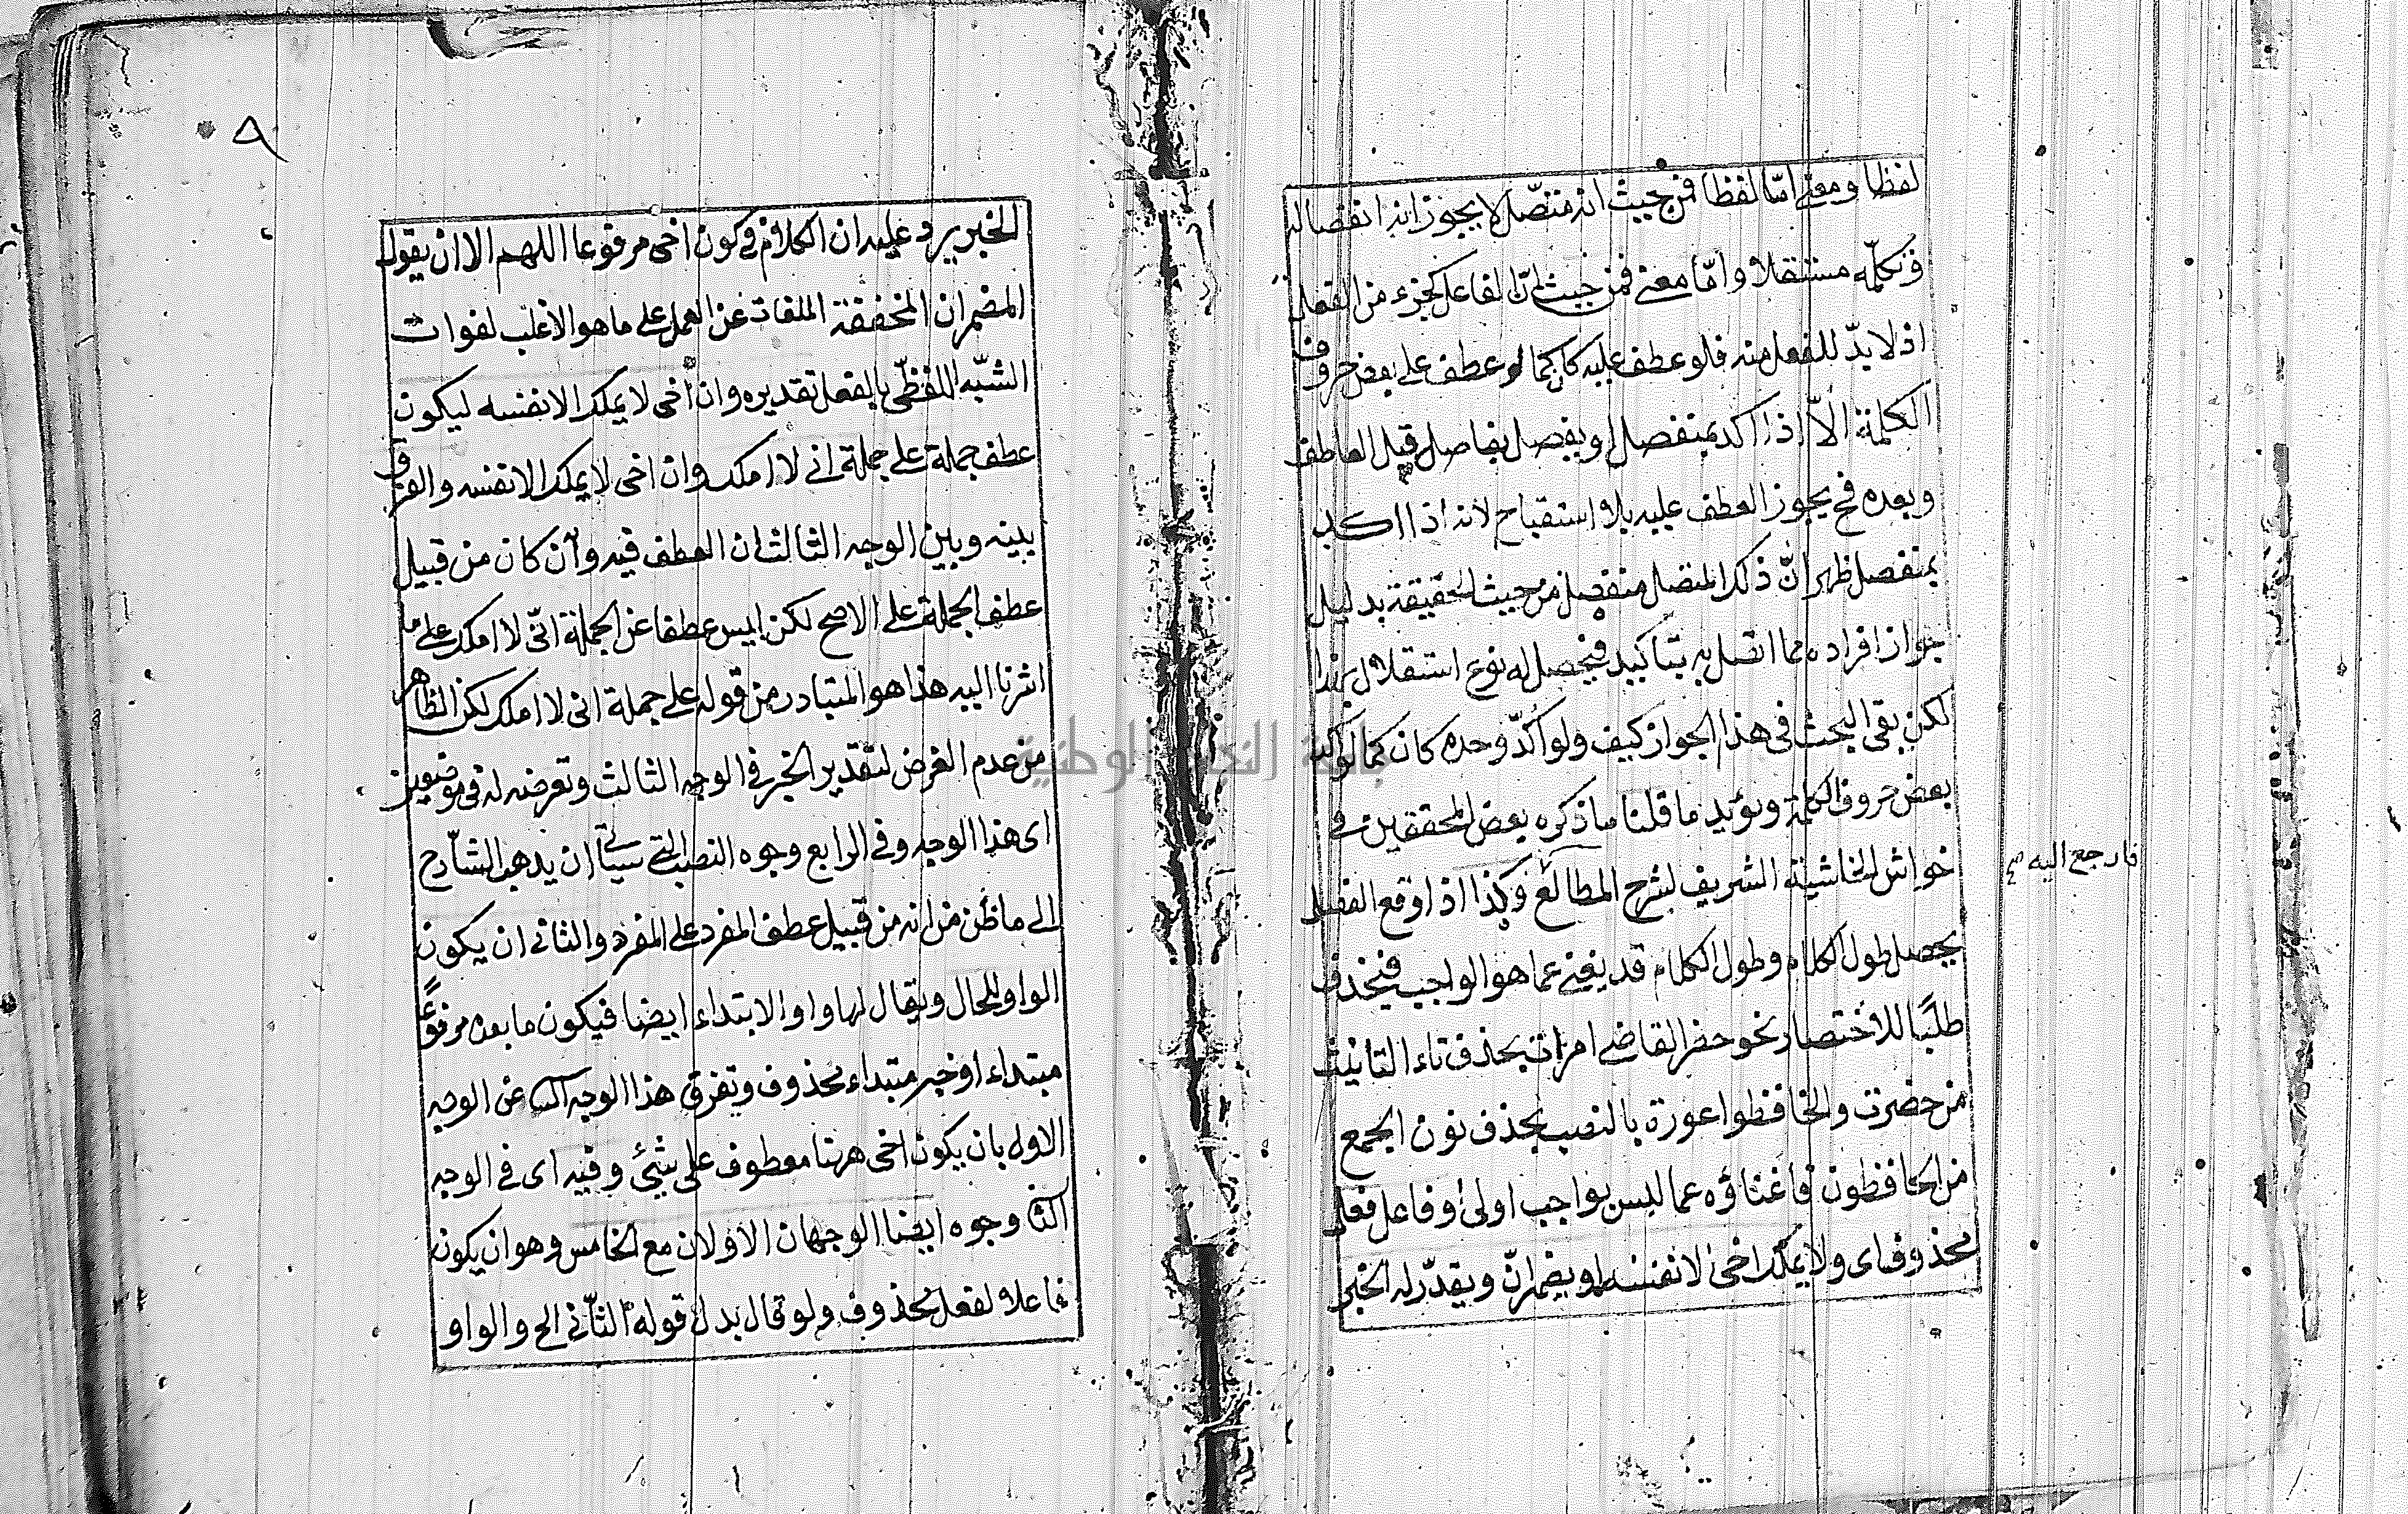 لفظا ومعنى اما لفظا فمن حيث انه متصل لا يجوز انفصاله
فكلمه مستقلا واما معنى فمن حيث ان الفاعل كجزء من الفعل
اذ لا بد للفعل منه فلو عطف عليه كان كما لو عطف على بعض حروف
الكلمة الا اذا اكد بمنفصل او يفصل بفاصل قبل العاطف
وبعده فح يجوز العطف عليه بلا استقباح لانه اذا اكد
بمنفصل ظهر ان ذلك المتصل منفصل من حيث الحقيقة بدليل
جواز افراده مما اتصل به بتاكيد فيحصل له نوع استقلال
لكن بقى البحث فى هذا الجواز كيف ولو اكد وحده كان كما لو اكد
بعض حروف الكلمة ويؤيد ما قلنا ما ذكره بعض المحققين فى
حواش الحاشية الشريف لشرح المطالع وكذا اذا وقع الفصل
فارجع اليه
يحصل طول الكلام وطول الكلام قد يغنى عما هو الواجب فيحذف
طلبا للاختصار نحو حضر القاضى امرات بحذف تاء التانيث
من حضرت والحافظوا عورة بالنصب بحذف نون الجمع
من الحافظون فاغناؤه عما ليس بواجب اولى او فاعل فعل
محذوف اى ولا يملك اخى الا نفسه او يضمر ان ويقدر له الخبر
٨
الخبر يرد عليه ان الكلام فى كون اخى مرفوعا اللهم الا ان يقول
المضمر ان المخففة الملغاة عن العمل على ما هو الاغلب لفوات
الشبه اللفظى بالفعل تقديره وان اخى لا يملك الا نفسه ليكون
عطف جملة على جملة انى لا املك وان اخى لا يملك الا نفسه والفرق
بينه وبين الوجه الثالث ان العطف فيه وان كان من قبيل
عطف الجملة على الاصح لكن ليس عطفا عن الجملة انى لا املك على ما
اشرنا اليه هذا هو المتبادر من قوله على جملة انى لا املك لكن الظاهر
من عدم الغرض لتقدير الخبر فى الوجه الثالث وتعرضه له فى موضعين
اى هذا الوجه وفى الرابع وجوه النصب التى سيأتى ان يذهب الشارح
الى ما ظن من انه من قبيل عطف المفرد على المفرد والثانى ان يكون
الواو للحال ويقال لها واو الابتداء ايضا فيكون ما بعده مرفوعا
مبتداء او خبر مبتداء محذوف وتفرق هذا الوجه عن الوجه
الاول بان يكون اخى ههنا معطوف على شئ وفيه اى فى الوجه
الثا وجوه ايضا الوجهان الاولان مع الخامس وهو ان يكون
فاعلا لفعل محذوف ولو قال بدل قوله الثانى الخ والواو